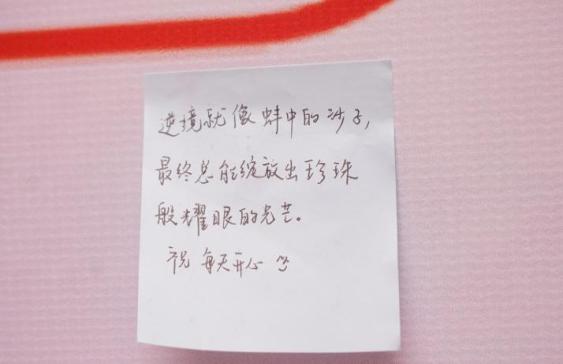 逆境就像蚌中的沙子，
最终总能绽放出珍珠
般耀眼的光芒。
祝 每天开心